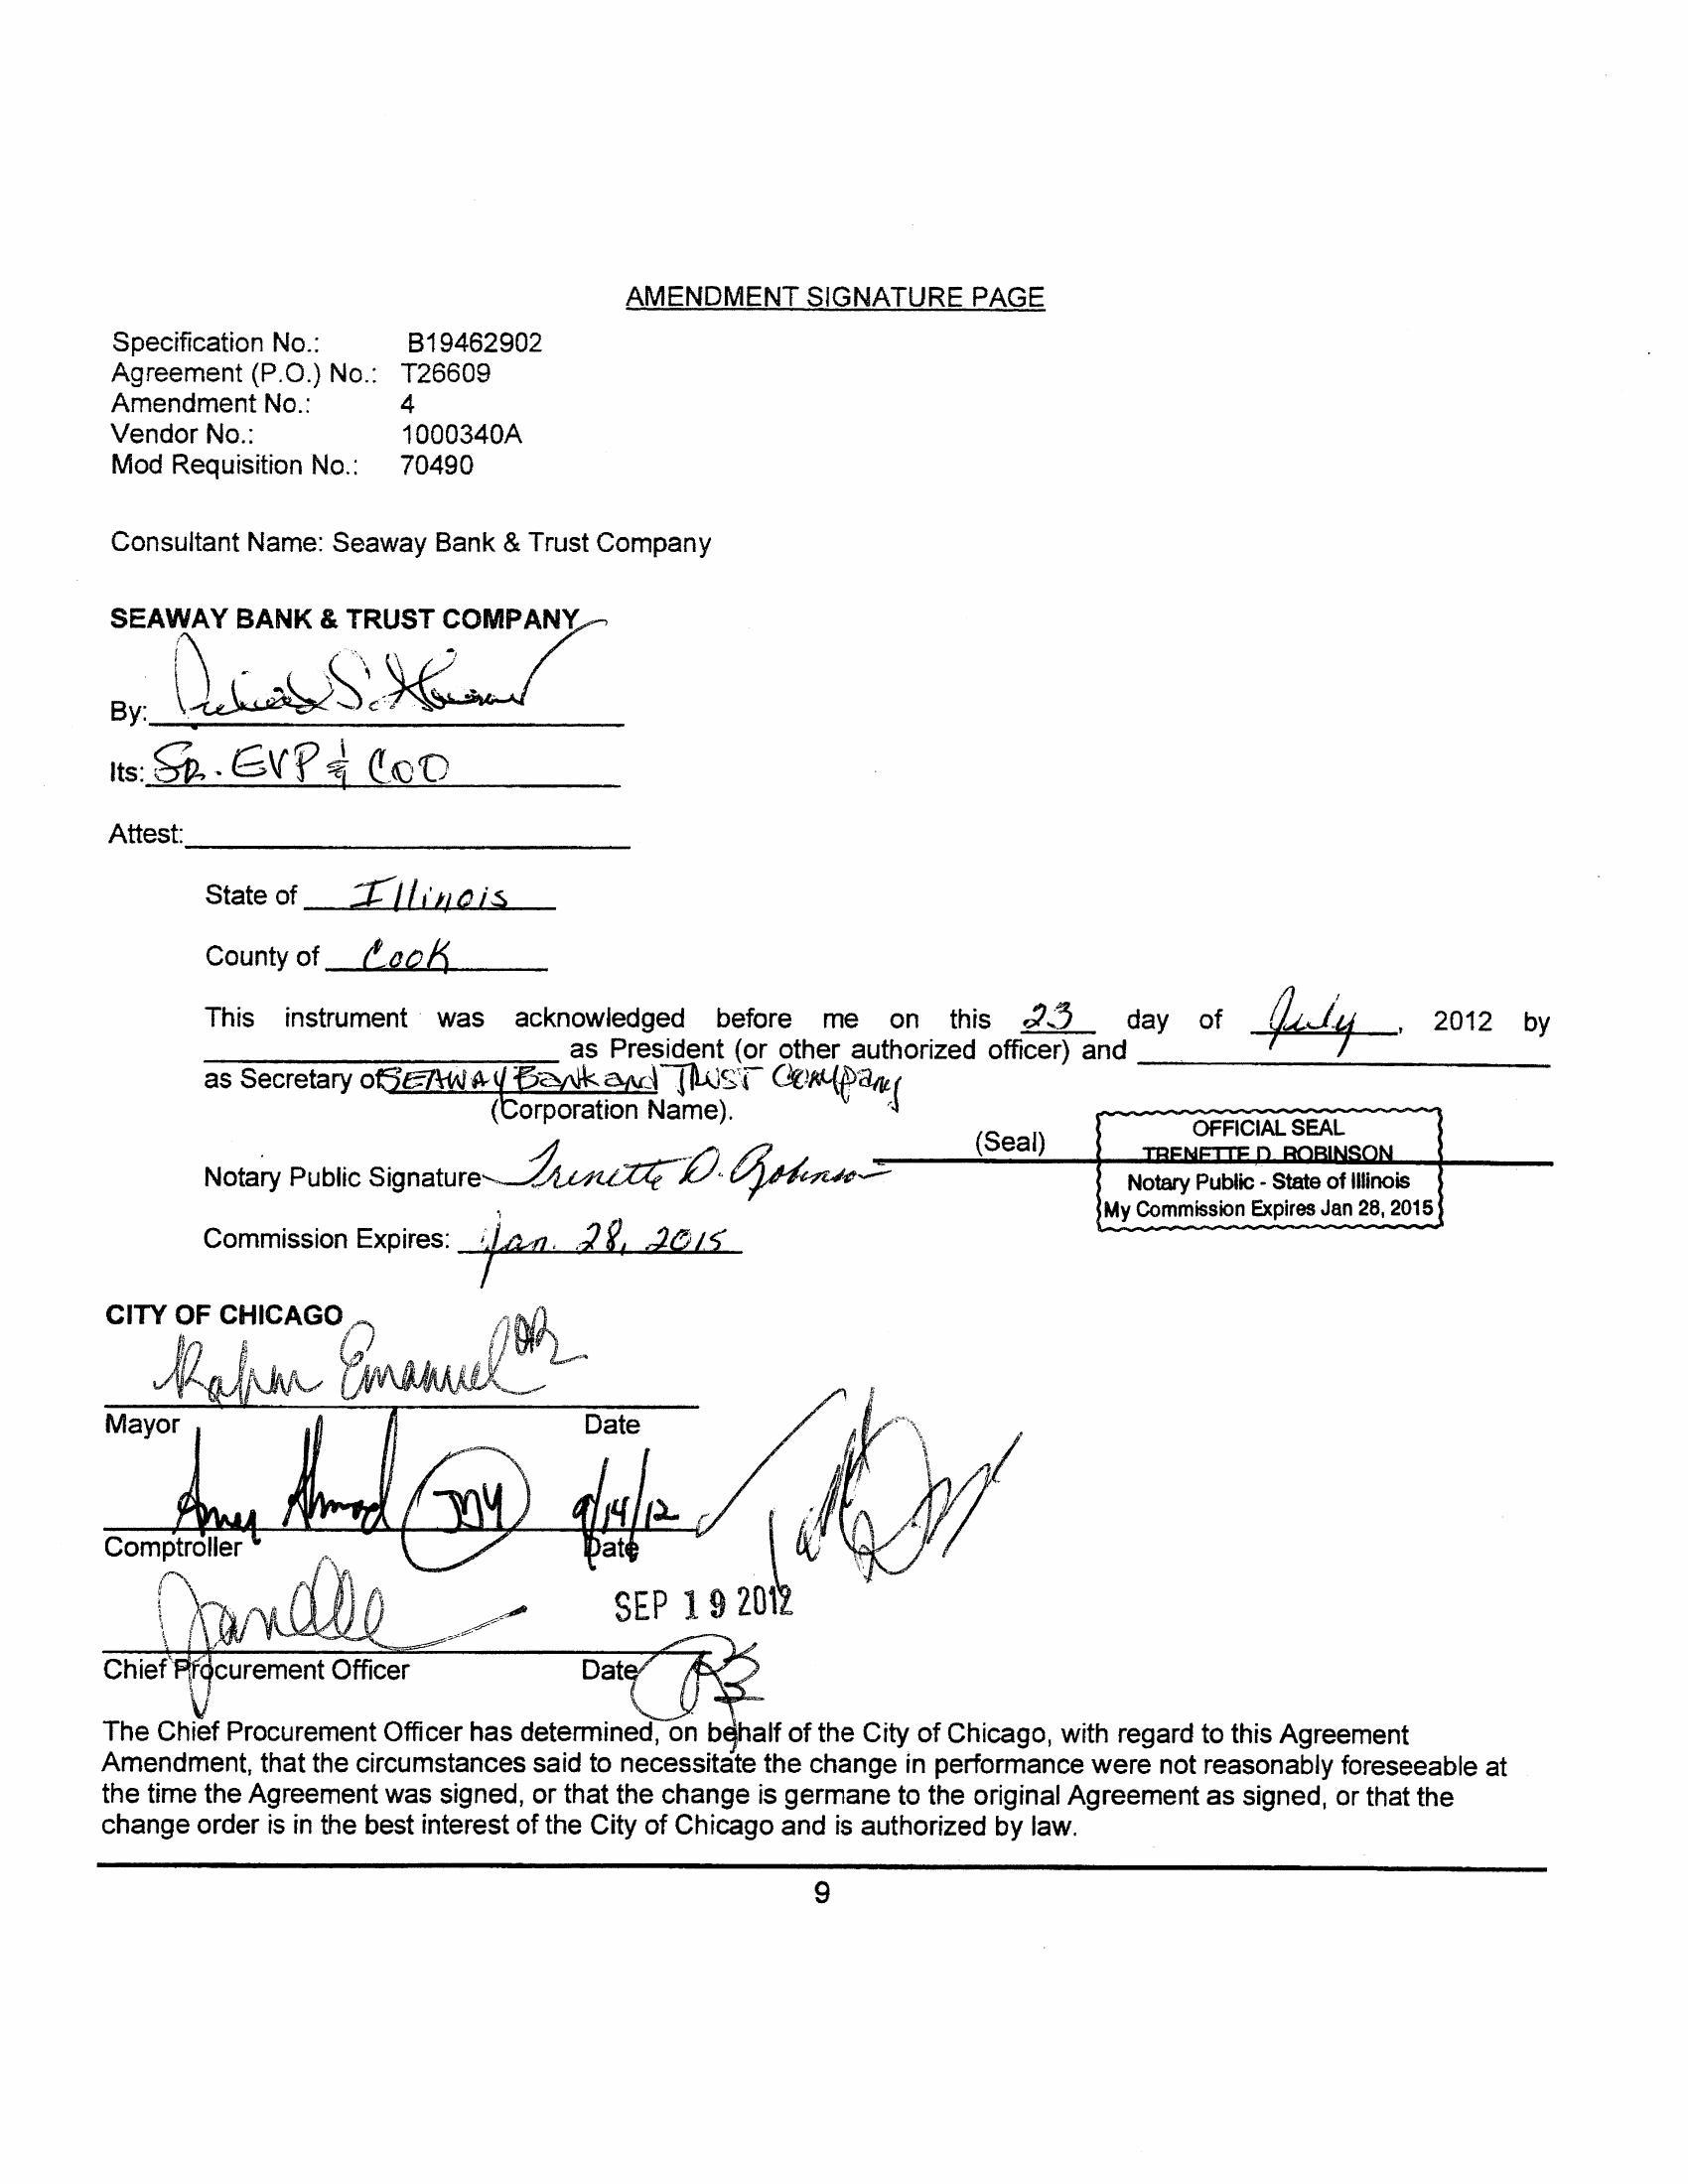 AMENDMENT SIGNATURE PAGE
Specification No.: B19462902
Agreement (P.O.) No.: T26609
Amendment No.: 4
Vendor No.: 1000340A
Mod Requisition No.: 70490
Consultant Name: Seaway Bank & Trust Company
SEAWAY BANK & TRUST COMPANY
By:
Its: SR. EVP & COO
Attest:
State of Illinois
County of Cook
This instrument was acknowledged before me on this 23 day of July, 2012 by
as President (or other authorized officer) and
as Secretary of SEAWAY Bank and TRUST Company
(Corporation Name).
(Seal)
OFFICIAL SEAL
TRENETTE D. ROBINSON
Notary Public - State of Illinois
My Commission Expires Jan 28, 2015
Notary Public Signature Trenette D. Robinson
Commission Expires: Jan. 28, 2015
CITY OF CHICAGO
Rahm Emanuel
Mayor Date
Amer Ahmad 9/14/12
Comptroller Date
SEP 19 2012
Chief Procurement Officer Date
The Chief Procurement Officer has determined, on behalf of the City of Chicago, with regard to this Agreement
Amendment, that the circumstances said to necessitate the change in performance were not reasonably foreseeable at
the time the Agreement was signed, or that the change is germane to the original Agreement as signed, or that the
change order is in the best interest of the City of Chicago and is authorized by law.
9